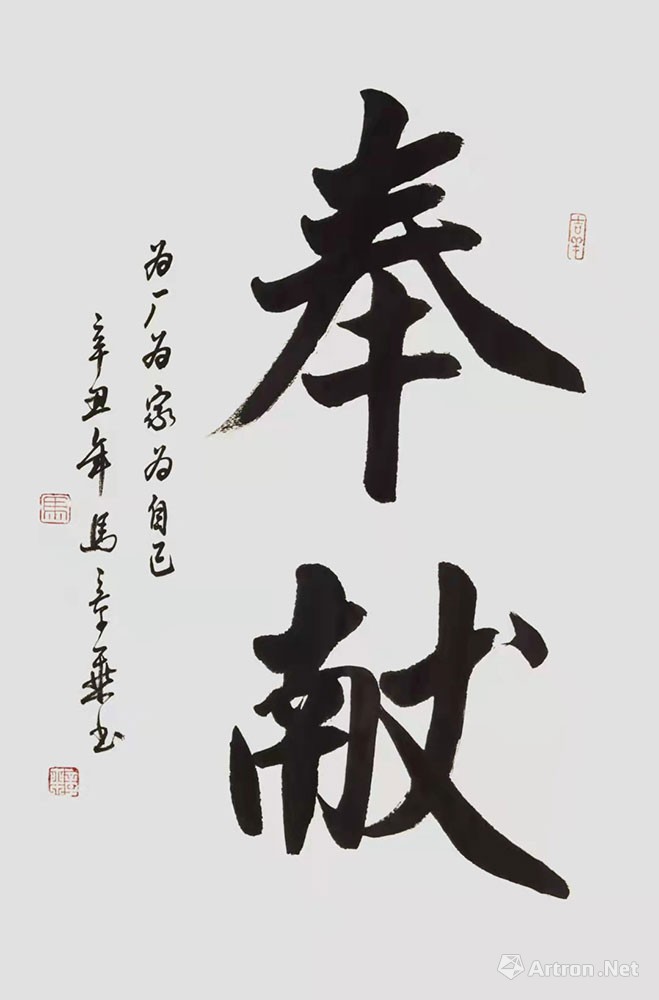 奉献
为厂为家为自己
辛丑年馬章乘书
馬
Artron.Net